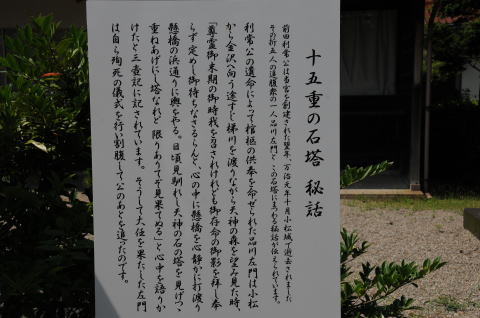 十五重の石塔 秘話
前田利常公は当宮を創建された翌年、万治元年十月小松城で逝去されました
その折五人の追腹衆の一人品川左門と、この石塔にまつわる秘話が伝えられています。
利常公の遺命によって棺柩の供奉を命ぜられた品川左門は小松
から金沢へ向う途すじ梯川を渡りながら天神の森を望み見た時、
「尊霊御末期の御時我を召されけれども御存命の御影を拝し奉
らず定めし御待ちなさるらんと、心の中に懸橋を心静かに打渡り
懸橋の浜通りに輿をやる。日頃見馴れし天神の石の塔を見げつゝ
重ねあげにし塔なれど限りありてぞ見果てぬる」と心中を語りか
けたと三壺記に記されています。そうして大任を果たした左門
は自ら殉死の儀式を行い割腹して公のあとを追ったのです。